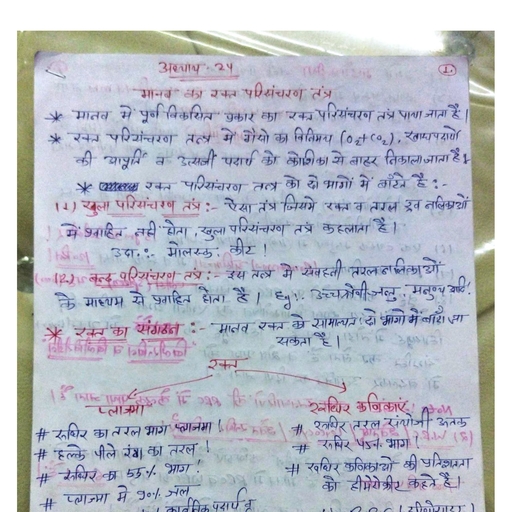 अध्याय - 24
1.
मानव का रक्त परिसंचरण तंत्र
* मानव में पूर्ण विकसित प्रकार का रक्त परिसंचरण तंत्र पाया जाता है।
* रक्त परिसंचरण तन्त्र में गैसो का विनिमय (O2, CO2),
की आपूर्ति व उत्सर्जी पदार्थ को कोशिका से बाहर निकाला जाता है।
* रक्त परिसंचरण तन्त्र को दो भागों में बाँटते है :-
(1) खुला परिसंचरण तंत्र :- ऐसा तंत्र जिसमे रक्त व तरल द्रव नलिकाओं
में प्रवाहित नही होता, खुला परिसंचरण तंत्र कहलाता है।
उदा. :- मोलस्क, कीट।
(2) बन्द परिसंचरण तंत्र :- इस तन्त्र में तरल नलिकाओं
के माध्यम से प्रवाहित होता है। Eg:- मनुष्य आदि.
* रक्त का संगठन :- मानव रक्त को सामान्यतः दो भागो में बाँटा जा
सकता है।
रक्त
प्लाज्मा
रूधिर कणिकाएं
# रूधिर का तरल भाग प्लाज्मा।
# रूधिर तरल संयोजी ऊतक
# हल्के पीले रंग का तरल।
# रूधिर 45% भाग।
# रूधिर का 55% भाग।
# रूधिर कणिकाओं की प्रतिशतता
को हीमेटोक्रीट कहते है।
# प्लाज्मा में 90% जल
कार्बनिक पदार्थ